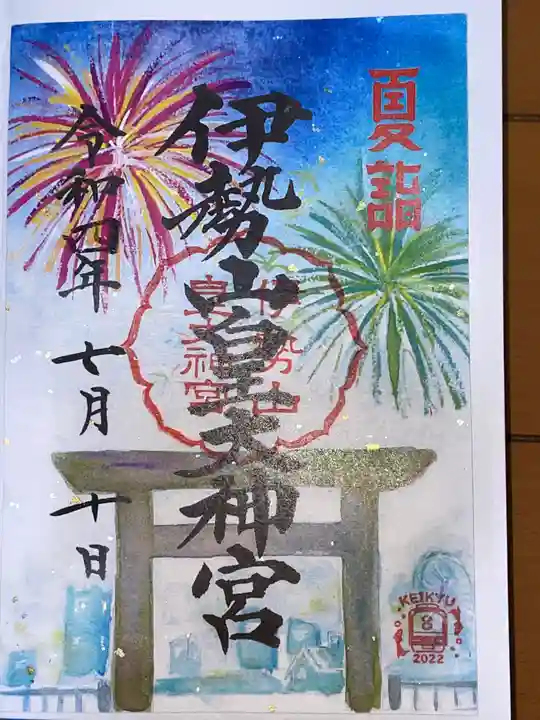 夏詣
伊勢山皇大神宮
伊勢山
皇大神宮
令和四年 七月 十日
KEIKYU
2022